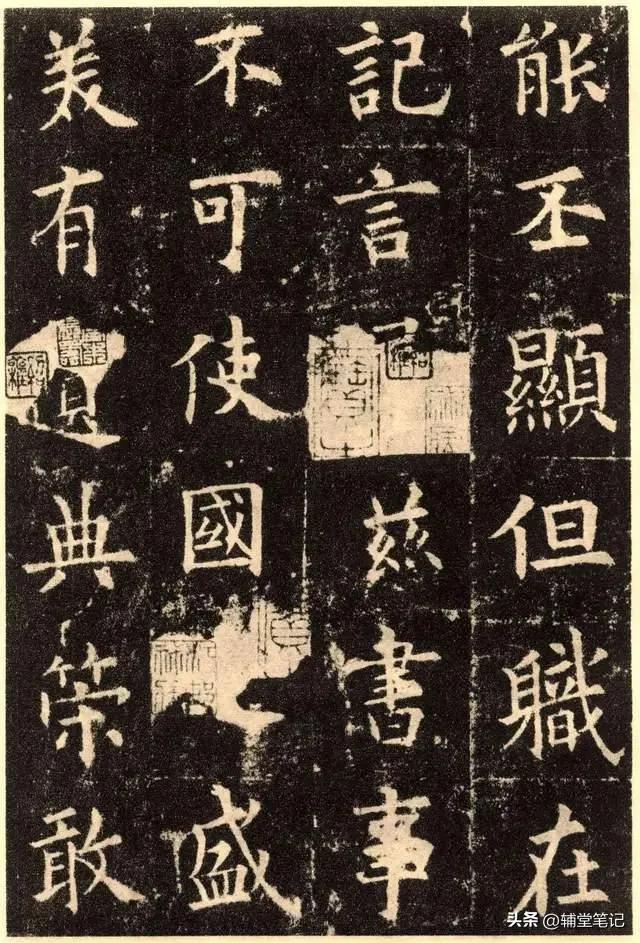 能丕顯但職在
記言兹書事
不可使國盛
美有遺典策敢
头条 @辅堂笔记